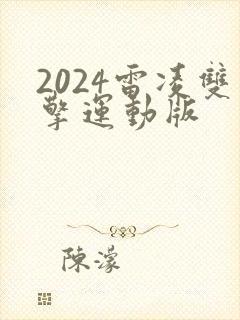 2024雷凌雙
擎運動版
陳濛